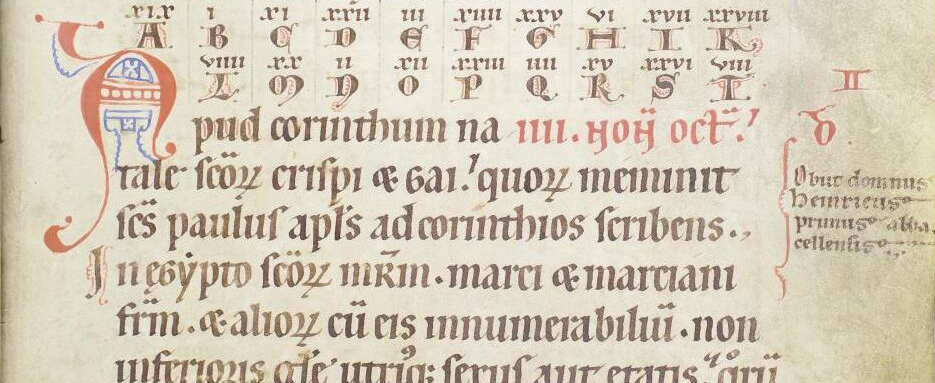 xix i xi xxii iii xiiii xxv vi xvii xxviii
A B C D E F G H I K
viiii xx ii xii xxiii iiii xv xxvi viii
L M N O P Q R S T
II
Apud corinthum na iiii. noñ oct̄.
D
tale scōꝝ crispi & gai. quoꝝ meminit
scs̄ paulus apl̄s ad corinthios scribens.,
In egypto scōꝝ mr̄m. marci & marciani
fr̄m. & alioꝝ cū eis innumerabiliū. non
inferioris gl̄e utriꝰq; sexus aut etatis.
Obiit domnus
heinricus
primus abba
cellensis